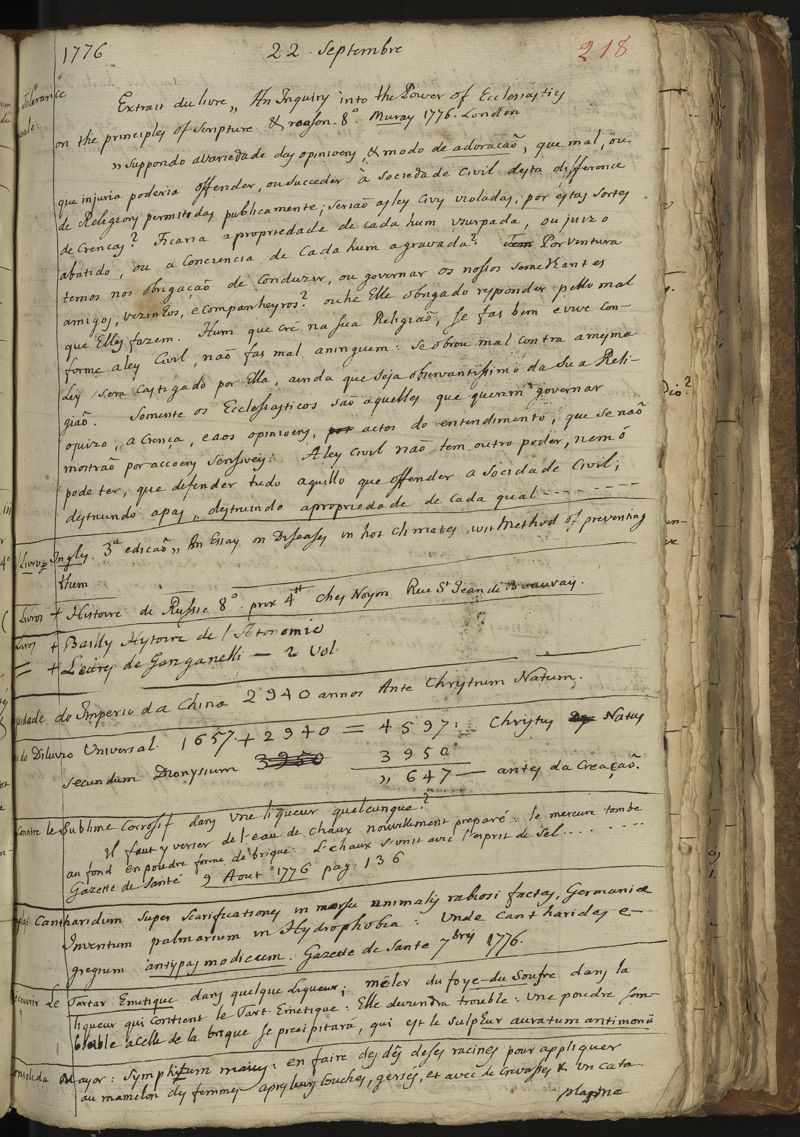 1776 22. Septembre 218
Tolerance Extrait du livre „ An Inquiry into the Power of Ecclesiastics
on the principles of scripture & reason. 8.° Muray 1776. London
„ suppondo avariedade das opinioens, & modo de adoracaõ, que mal, ou
que injuria poderia offender, ou succeder à Sociedade Civil desta differença
de Religions permitidas publicamente; seriaõ as ley Civis violadas, por estas sortes
de Crenças? Ficaria apropriedade de cada hum usurpada, ou juizo
abatido, ou a Conciencia de Cada hum agravada? Porventura
temos nos obrigaçaõ de Conduzir, ou governar os nossos semelhantes
amigos, vezinhos, e companheyros? ou he Elle obrigado responder pello mal
que Elles fazem. Hum que crè na sua Religiaõ, se fas bem e vive con-
forme a ley Civil, naõ fas mal aninguem: se obrou mal contra amesma
Ley sera Castigado por Ella, ainda que seja observantissimo da sua Reli-
giaõ. Somente os Ecclesiasticos saõ aquelles que querem governar
ojuizo, a Crença, e aos opinioens, actos do entendimento, que se naõ
mostraõ por accoens sensiveis: A ley Civil naõ tem outro poder, nem ó
pode ter, que defender tudo aquillo que offender a Sociedade Civil;
destruindo apas, destruindo apropriedade de cada qual - - - - - - -
Livros Ingles. 3ª edicaõ „ An Essay on Diseases in hot climates, wit Method of preventing
them
Livros + Histoire de Russie 8° prix 4 ches Noyon Rue S.t Jean de Beauvay.
Livros + Bailly Hystoire de l'Astronomie
= + Letres de Ganganelli — 2 Vol.
do Imperio da China 2940 annos Ante Chrystum Natum.
do Diluvio Universal. 1657 + 2940 = 4597: Chrystus Natus
secundum Dionysium 3950 3950
„ 647 — antes da Creaçaõ.
le Sublime Corrosif dans une liqueur quelcunque?
Il faut y verser de l'eau de chaux nouvellement preparé: le mercure tombe
au fond en poudre forme de brique. L'chaux s'unit avec l'esprit de Sel........
Gazette de Santé 9 Aout 1776 pag: 136
Cantharidum super scarificationes in morsu animalis rabiosi factas, Germaniæ
Inventum palmarium in Hydrophobia: unde cantharides e-
gregium antispasmodicum. Gazette de Sante 7bris 1776.
Le Tartar Emetique dans quelque Liqueur; méler du foye-du Soufre dans la
liqueur qui contient le Tart. Emetique: Elle devendra trouble: une poudre sem-
blable acelle de la brique se precipitara, qui est le sulphur auratum antimonii
Mayor: Symphitum maius: en faire des dés deses racines pour appliquer
au mamelon des femmes apres leurs Couches, gersés, et avec de Crevasses & un cata
plasme